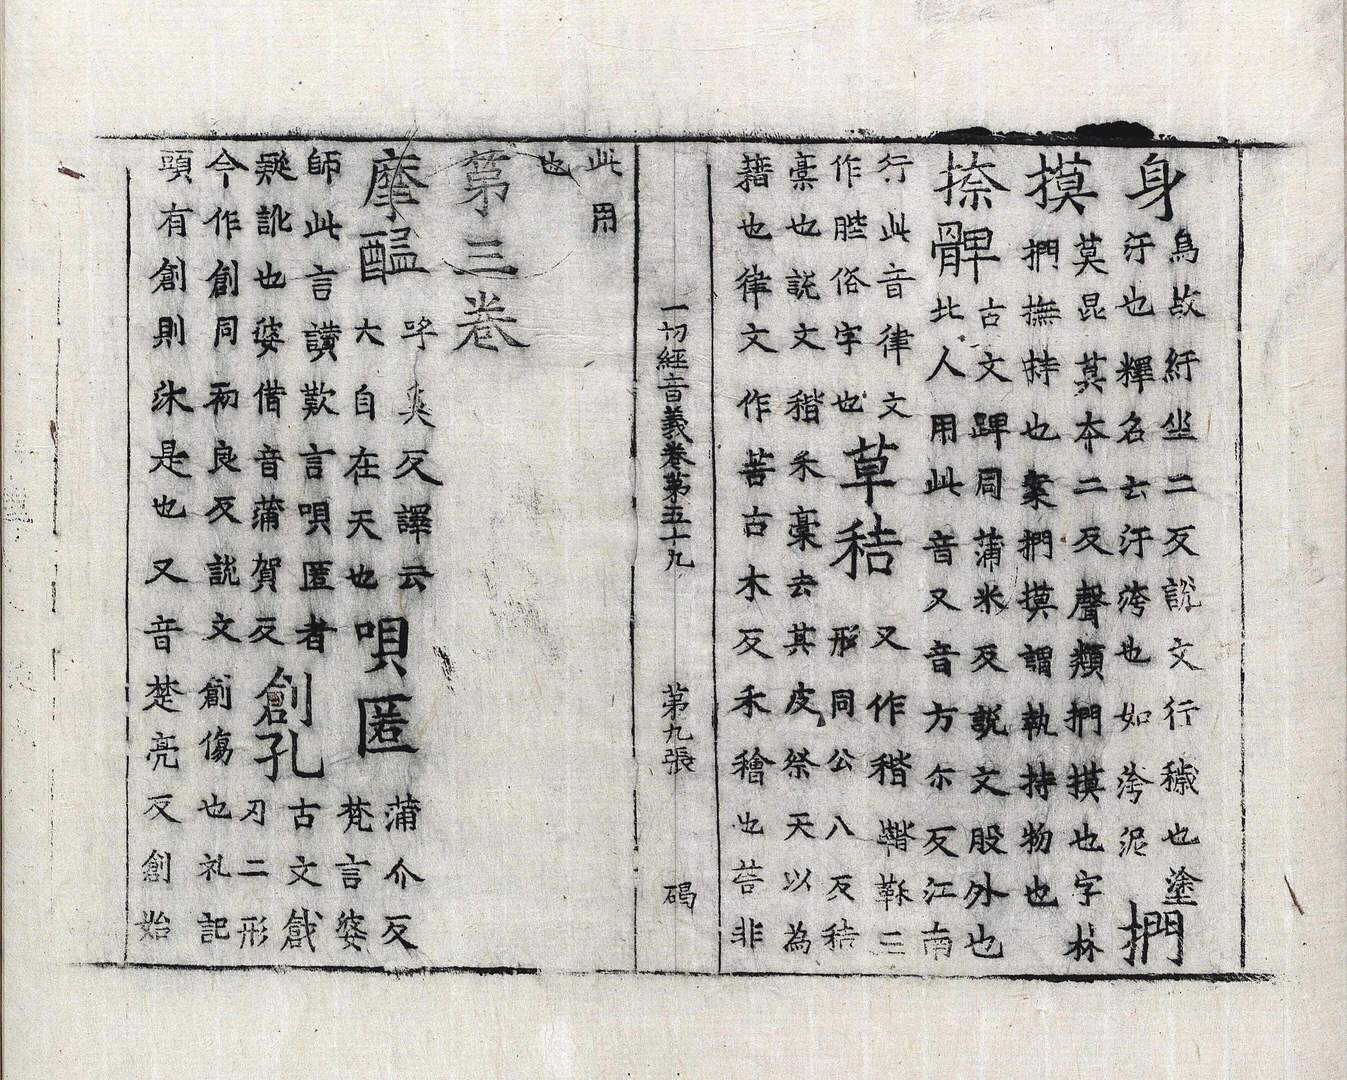 身
烏故紆坐二反說文行穢也塗
汙也釋名云汙洿也如洿泥
捫
摸
莫昆莫本二反聲類捫摸也字林
捫撫持也案捫摸謂執持物也
捺髀
古文踝同蒲米反說文股外也
北人用此音又音方尒反江南
行此音律文
作䏶俗字也
草秸
又作稭鞂三
形同公八反秸
稾也說文稭禾稾去其皮祭天以為
藉也律文作古木反禾穭也非
一切經音義卷第五十九 第九張 碣
此用
也
第三卷
摩醯
呼奚反譯云
大自在天也
唄匿
蒲介反
梵言婆
師此言讃歎言唄匿者
疑訛也婆借音蒲賀反
創孔
古文戧
刃二形
今作創同初良反說文創傷也礼記
頭有創則沐是也又音楚亮反創始